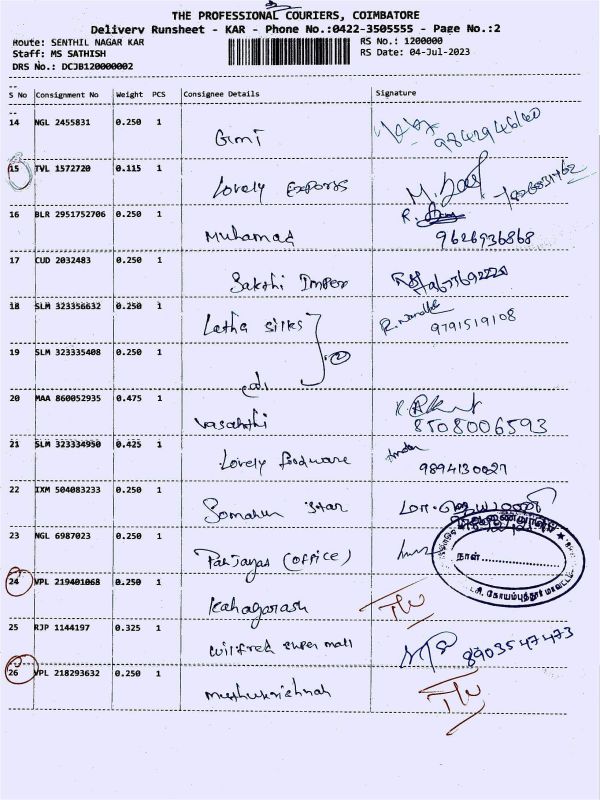 THE PROFESSIONAL COURIERS, COIMBATORE
Delivery Runsheet - KAR - Phone No.:0422-3505555 - Page No.:2
Route: SENTHIL NAGAR KAR
RS No.: 1200000
Staff: MS SATHISH
RS Date: 04-Jul-2023
DRS No.: DCJB120000002
S No Consignment No Weight PCS Consignee Details Signature
14 NGL 2455831 0.250 1
Gimi
15 TVL 1572720 0.115 1
Lovely
16 BLR 2951752706 0.250 1
Muhamad 9626936868
17 CUD 2032483 0.250 1
Sakthi Impex
18 SLM 323356632 0.250 1
Latha silks R. Nandha 9791519108
19 SLM 323335408 0.250 1
20 MAA 860052935 0.475 1
Vasahthi 8508006593
21 SLM 323334950 0.425 1
Lovely foodware 9894130027
22 IXM 504083233 0.250 1
Star
23 NGL 6987023 0.250 1
(OFFICE) நாள்
24 VPL 219401068 0.250 1
25 RJP 1144197 0.325 1
wilfred super mall 8903547473
26 VPL 218293632 0.250 1
muthukrishnah